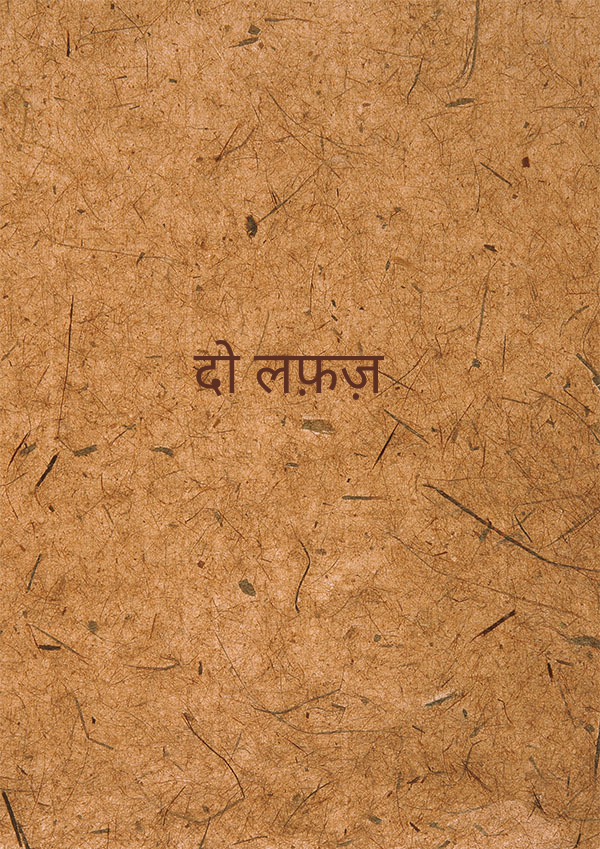 दो लफ़ज़